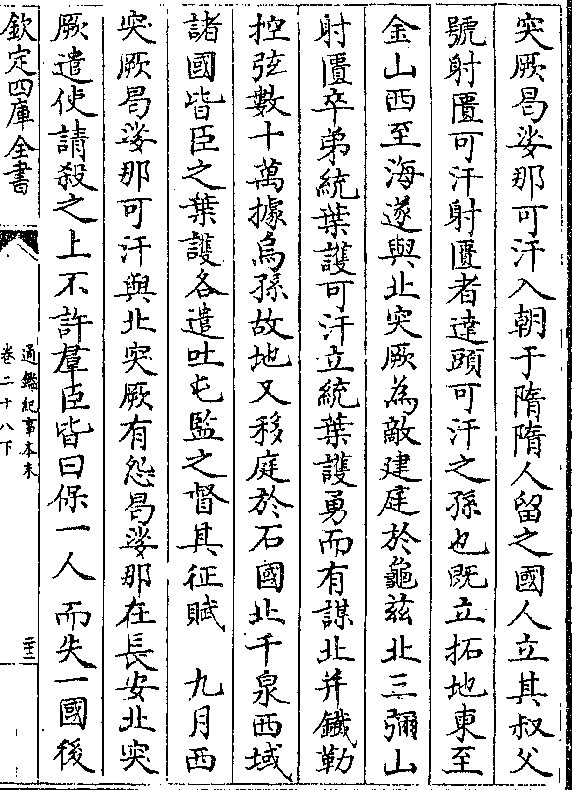 突厥曷娑那可汗入朝于隋隋人留之國人立其叔父
號射匱可汗射匱者達頭可汗之孫也既立拓地東至
金山西至海遂與北突厥為敵建庭於龜兹北三彌山
射匱卒弟統葉護可汗立統葉護勇而有謀北并鐵勒
控弦數十萬據烏孫故地又移庭於石國北千泉西域
諸國皆臣之葉護各遣吐屯監之督其征賦　九月西
突厥曷娑那可汗與北突厥有怨曷娑那在長安北突
厥遣使請殺之上不許羣臣皆曰保一人而失一國後
欽定四庫全書
通鑑紀事本末
卷二十八下
二十三